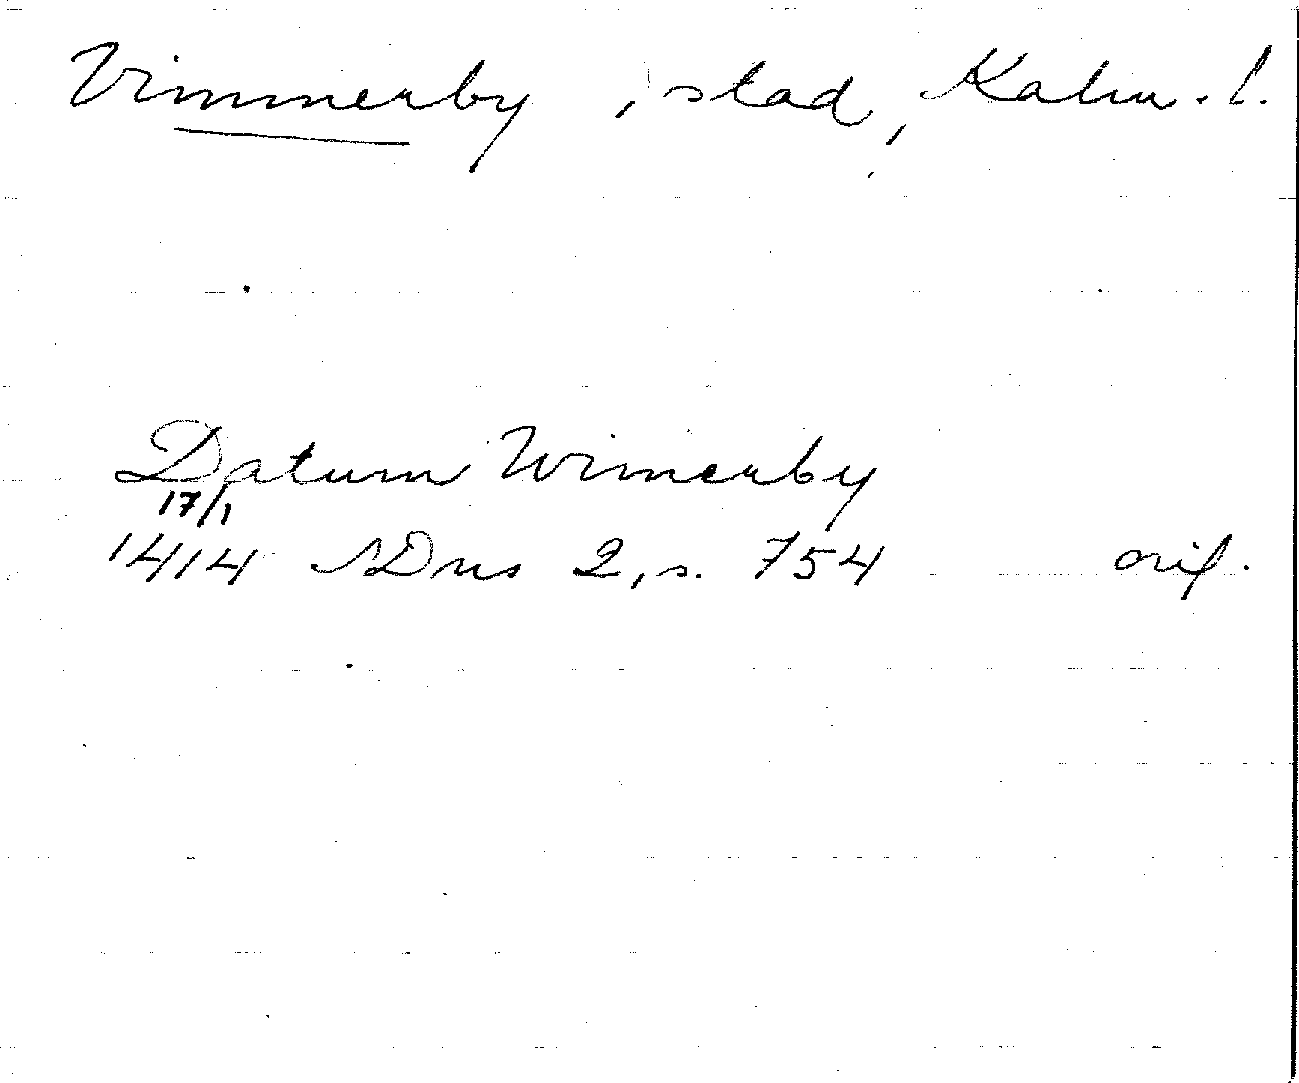 Vimmerby , stad, Kalm. l.
Datum Wimerby
17/1
1414 SDns 2, s. 754 orig.